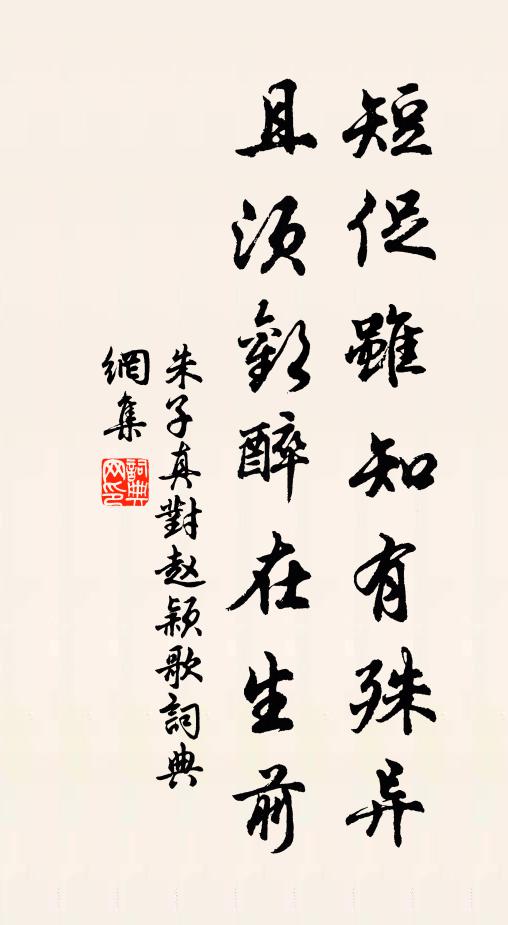 短促雖知有殊异
且須歡醉在生前
朱子真對赵颖歌詞典
網集
詞典網印